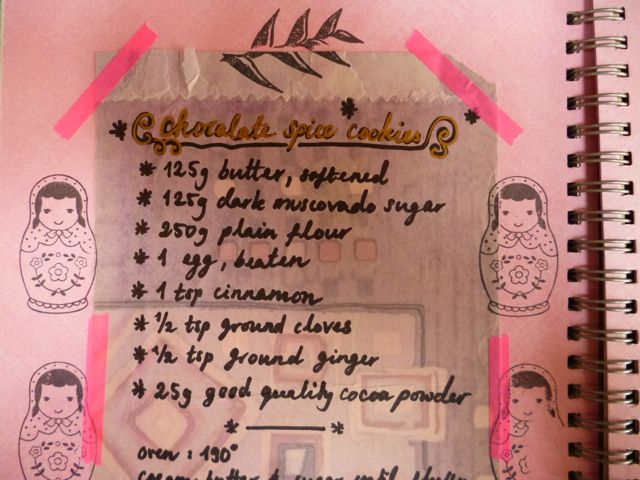 chocolate spice cookies
* 125g butter, softened
* 125g dark muscovado sugar
* 250g plain flour
* 1 egg, beaten
* 1 tsp cinnamon
* 1/2 tsp ground cloves
* 1/2 tsp ground ginger
* 25g good quality cocoa powder
oven : 190°
cream butter & sugar until fluffy